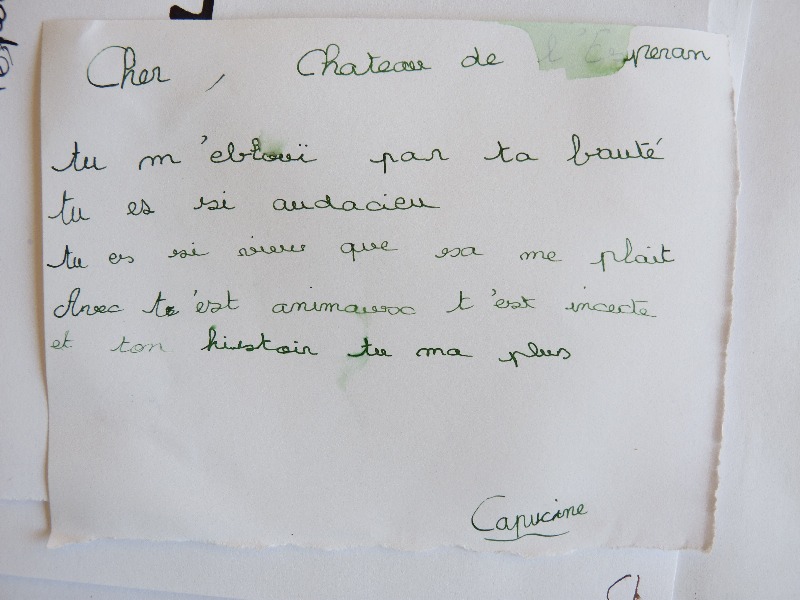 Cher, Chateau de l'Esperan
tu m'eblouï par ta bauté
tu es si audacieu
tu es si vieu que sa me plait
Avec t'est animauxx t'est incecte
et ton histoir tu ma plus
Capucine